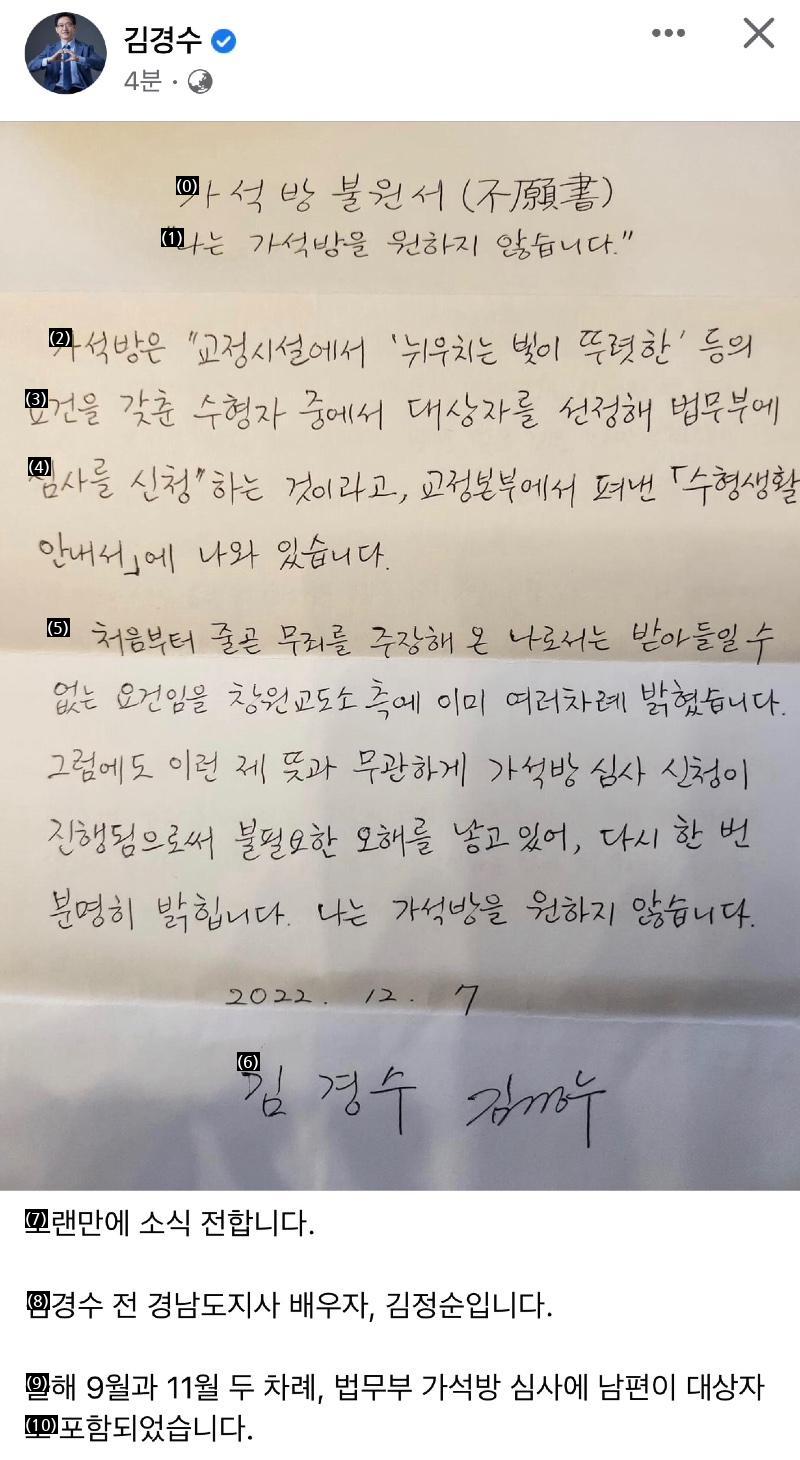 김경수
4분
(0)가석방 불원서 (不願書)
(1)"나는 가석방을 원하지 않습니다."
(2)가석방은 "교정시설에서 '뉘우치는 빛이 뚜렷한' 등의
(3)요건을 갖춘 수형자 중에서 대상자를 선정해 법무부에
(4)심사를 신청"하는 것이라고, 교정본부에서 펴낸 「수형생활
안내서」에 나와 있습니다.
(5) 처음부터 줄곧 무죄를 주장해 온 나로서는 받아들일 수
없는 요건임을 창원교도소 측에 이미 여러차례 밝혔습니다.
그럼에도 이런 제 뜻과 무관하게 가석방 심사 신청이
진행됨으로써 불필요한 오해를 낳고 있어, 다시 한 번
분명히 밝힙니다. 나는 가석방을 원하지 않습니다.
2022. 12. 7
(6)김 경 수 김경수
(7)랜만에 소식 전합니다.
(8)경수 전 경남도지사 배우자, 김정순입니다.
(9)해 9월과 11월 두 차례, 법무부 가석방 심사에 남편이 대상자
(10)포함되었습니다.